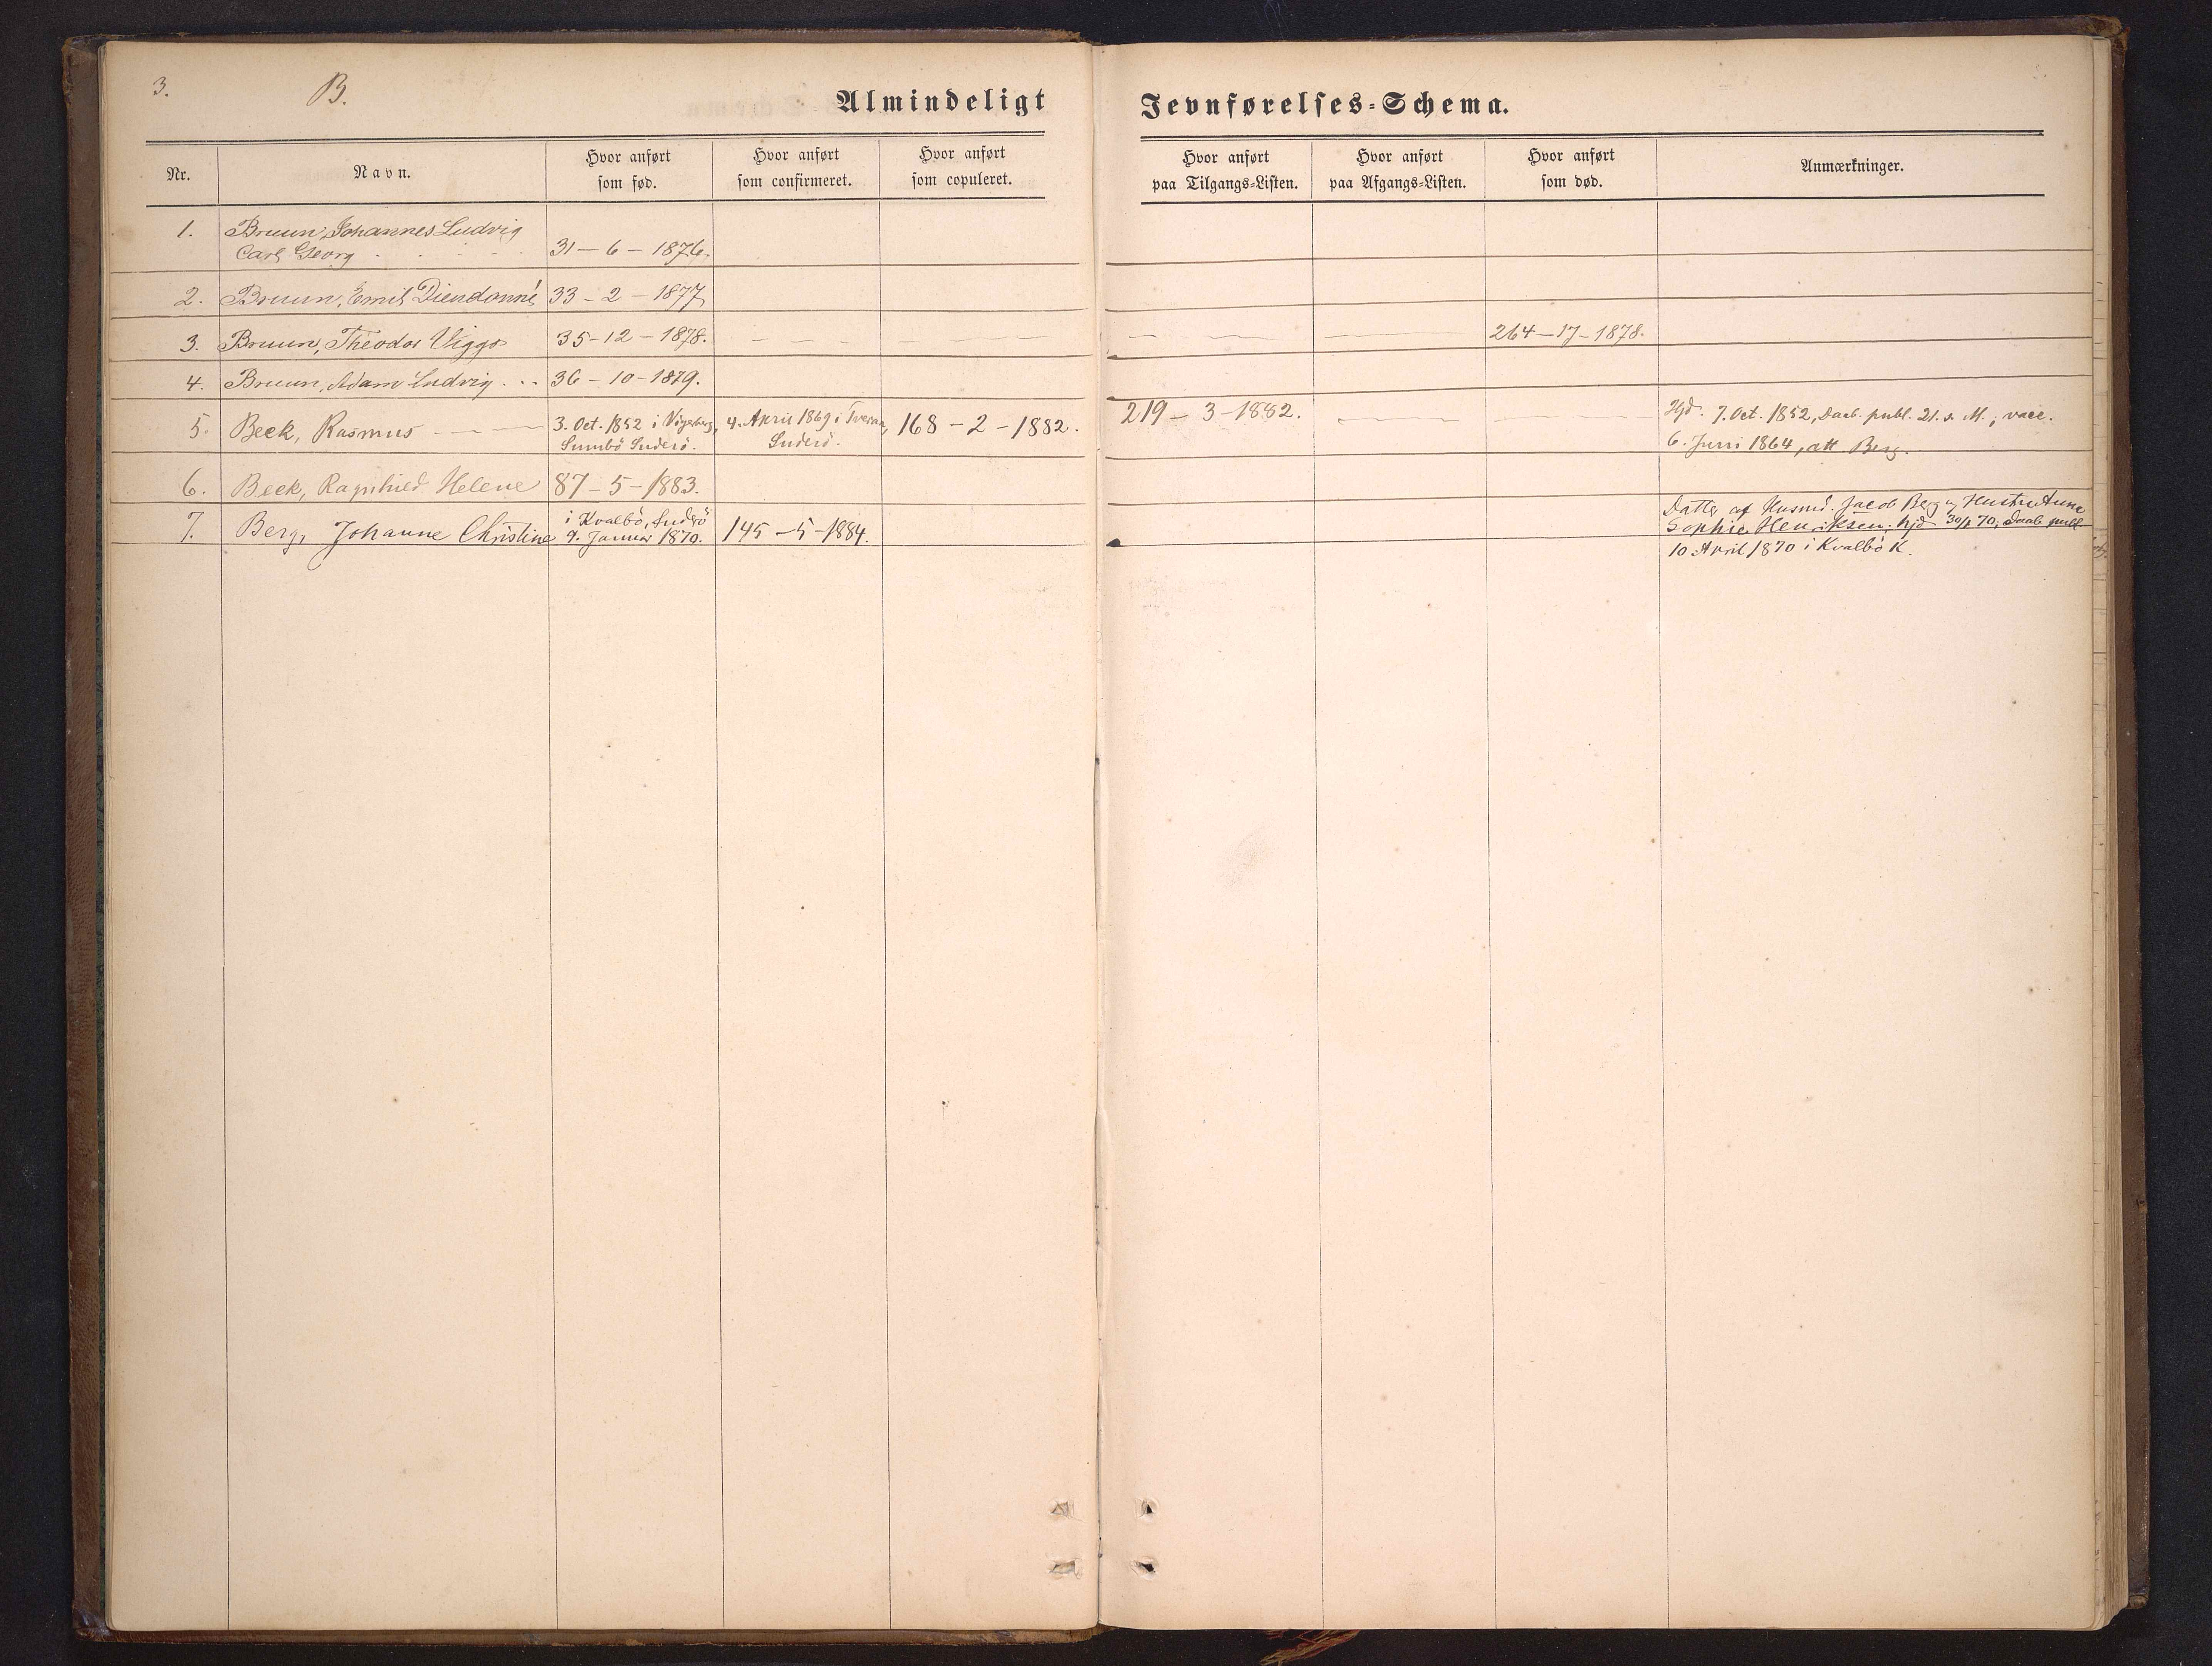 3.
B.
Almindeligt Jevnførelses-Schema.
Nr.
Navn.
Hvor anført
som fød.
Hvor anført
som confirmeret.
Hvor anført
som copuleret.
Hvor anført
paa Tilgangs-Listen.
Hvor anført
paa Afgangs-Listen.
Hvor anført
som død.
Anmærkninger.
1. Bruun, Johannes Ludvig
Carl Georg 31-6-1876.
2. Bruun, Emil Diendonné 33-2-1877
3. Bruun, Theodor Viggo 35-12-1878. 264-17-1878.
4. Bruun, Adam Ludvig 36-10-1879.
5. Beck, Rasmus
3. Oct. 1852 i
Sumbö Suderö.
4. April 1869 i
Suderö.
168-2-1882.
219-3-1882.
Hjd. 7. Oct. 1852, Daab publ. 21. s. M.; vacc.
6. Juni 1864, att. Berg.
6. Beck, Ragnhild Helene 87-5-1883.
7. Berg, Johanne Christine
i Kvalbö, Suderö
9. Januar 1870.
145-5-1884.
Datter af Husmd. Jacob Berg og Hustru Anne
Sophie Henriksen; hjd 70; Daab publ
10. April 1870 i Kvalbö K.